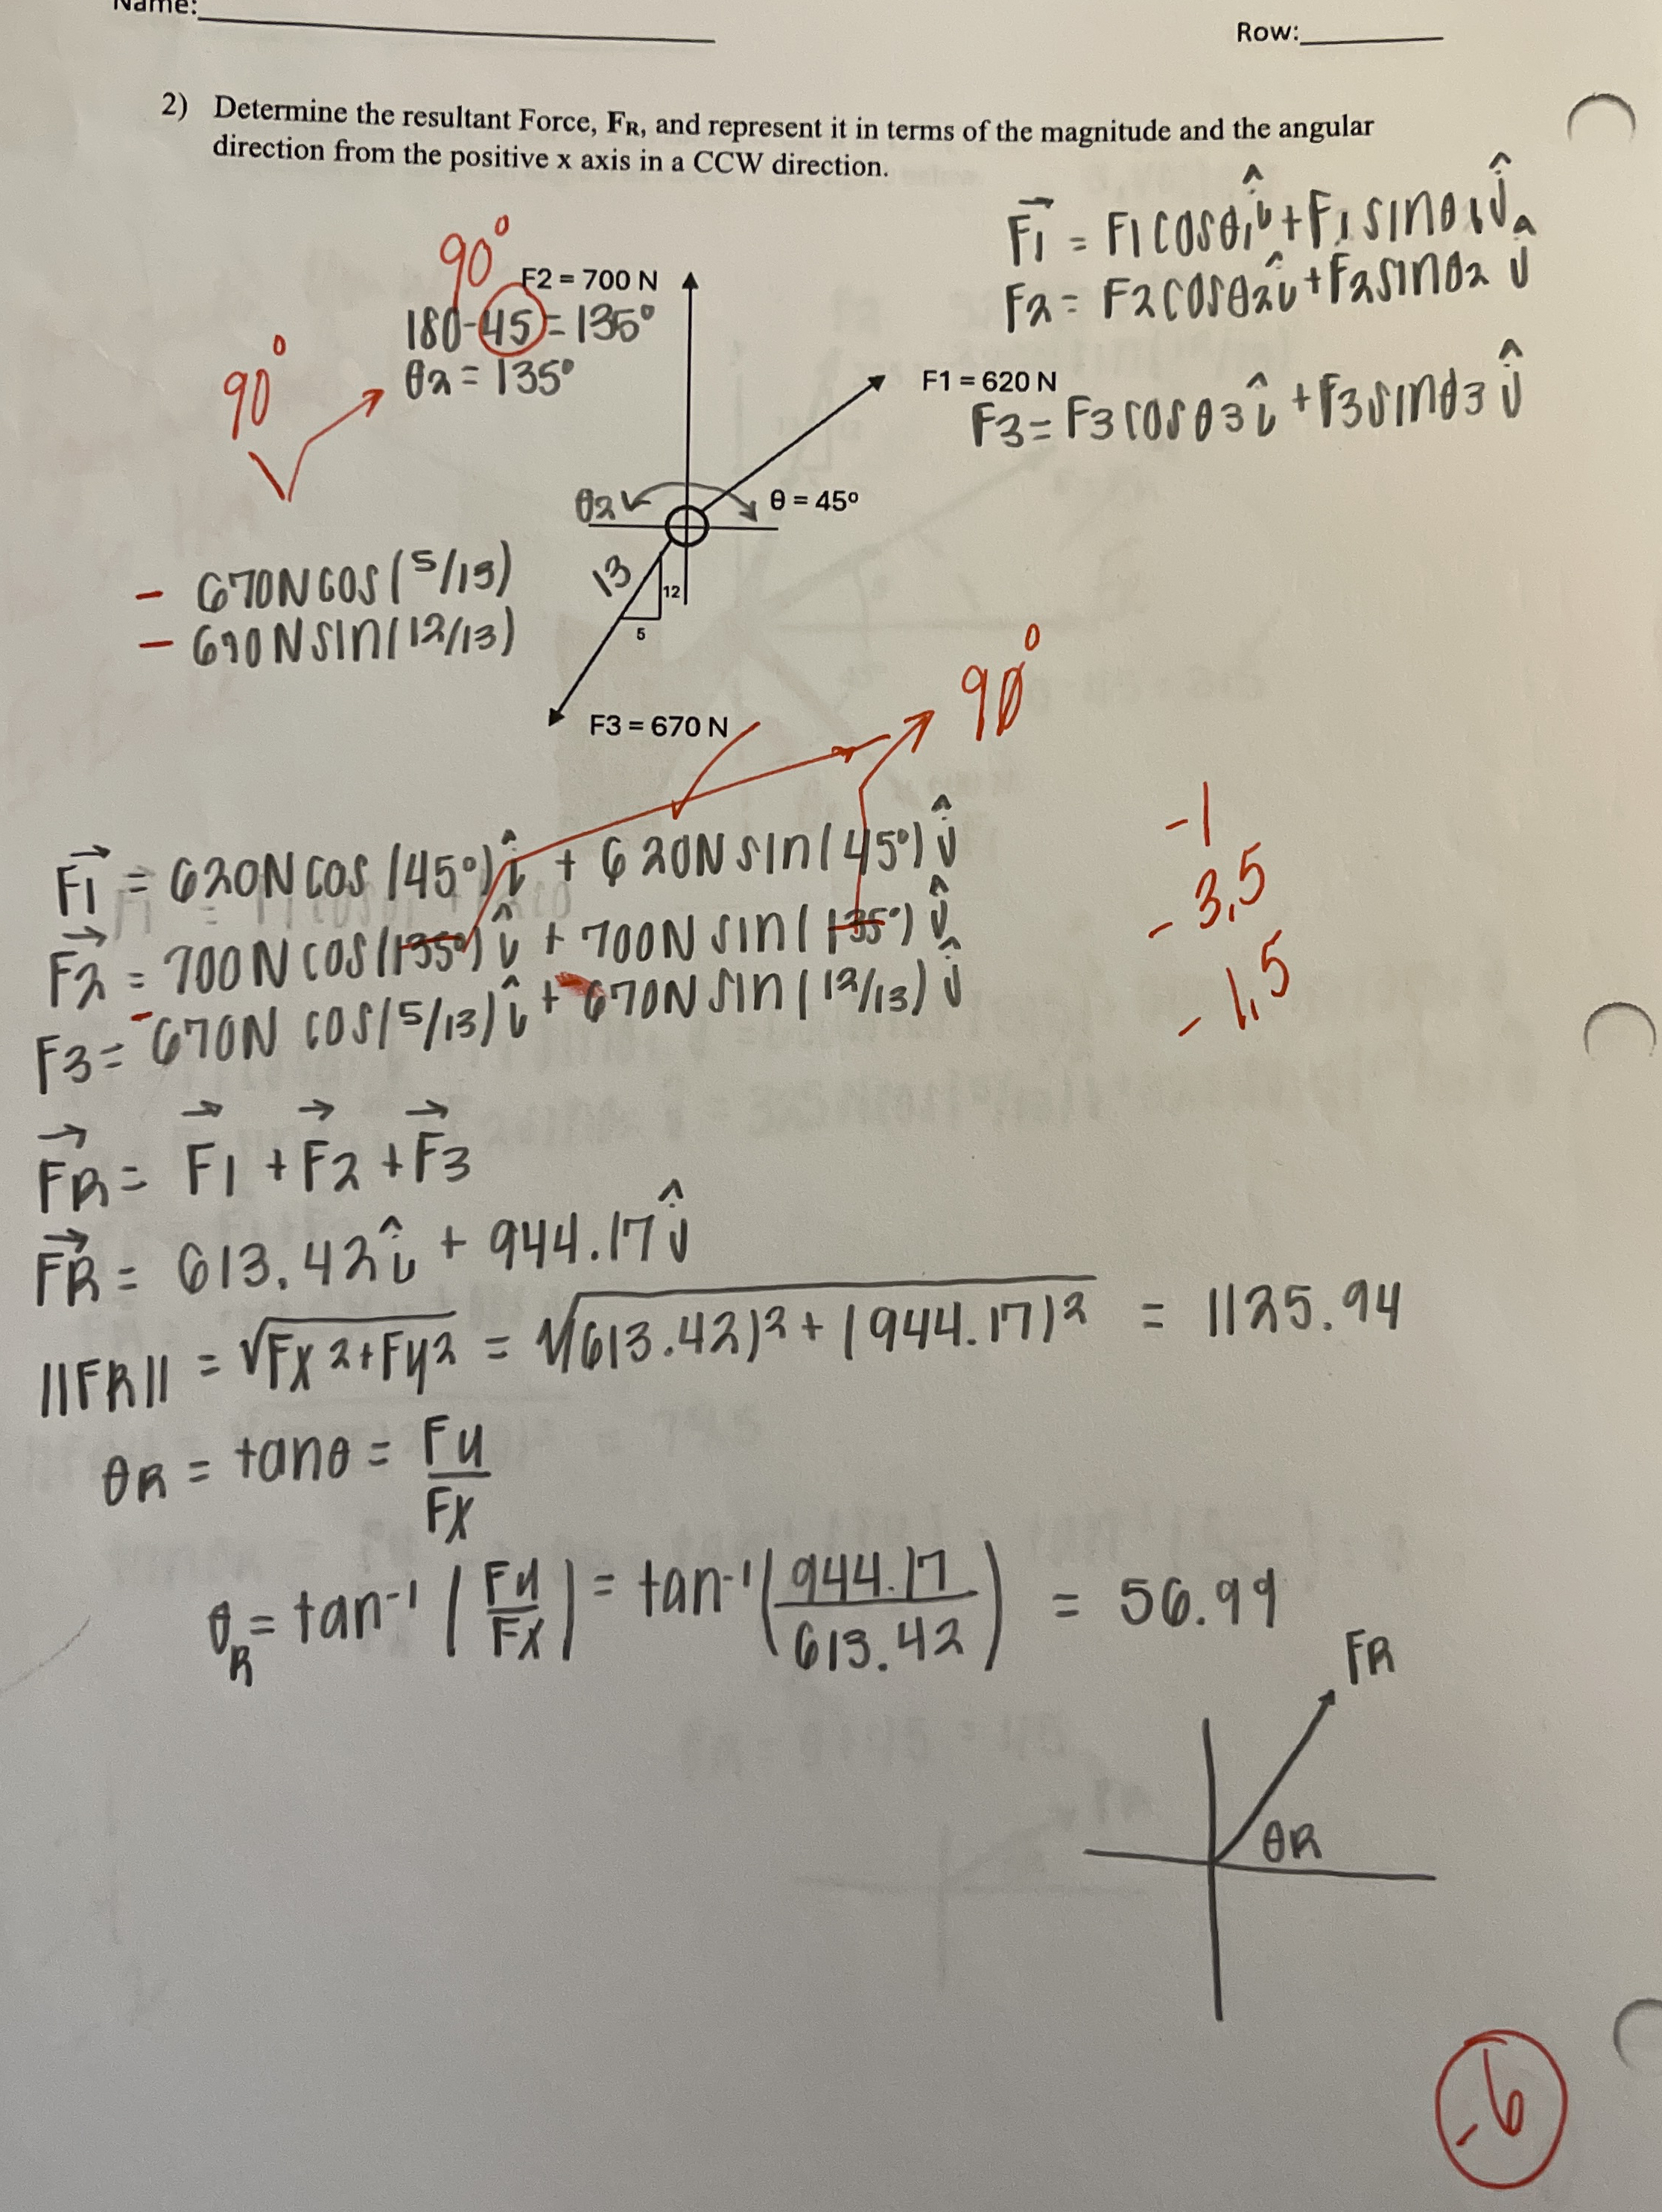 Name:
Row:
2) Determine the resultant Force, FR, and represent it in terms of the magnitude and the angular
direction from the positive x axis in a CCW direction.
F1 = F1cosθ1î + F1sinθ1ĵ
F2 = F2cosθ2î + F2sinθ2ĵ
F3 = F3cosθ3î + F3sinθ3ĵ
90°
F2 = 700 N
180-45 = 135°
θ2 = 135°
90°
F1 = 620 N
θ2
θ = 45°
- 670Ncos(5/13)
- 670Nsin(12/13)
13
12
5
F3 = 670 N
90°
F1 = 620Ncos(45°)î + 620Nsin(45°)ĵ
F2 = 700Ncos(135°)î + 700Nsin(135°)ĵ
F3 = -670Ncos(5/13)î + 670Nsin(12/13)ĵ
-1
-3.5
-1.5
FR = F1 + F2 + F3
FR = 613.42î + 944.17ĵ
||FR|| = √Fx2+Fy2 = √(613.42)2+(944.17)2 = 1125.94
θR = tanθ = Fy/Fx
θR = tan-1(Fy/Fx) = tan-1(944.17/613.42) = 56.99
FR
θR
-6